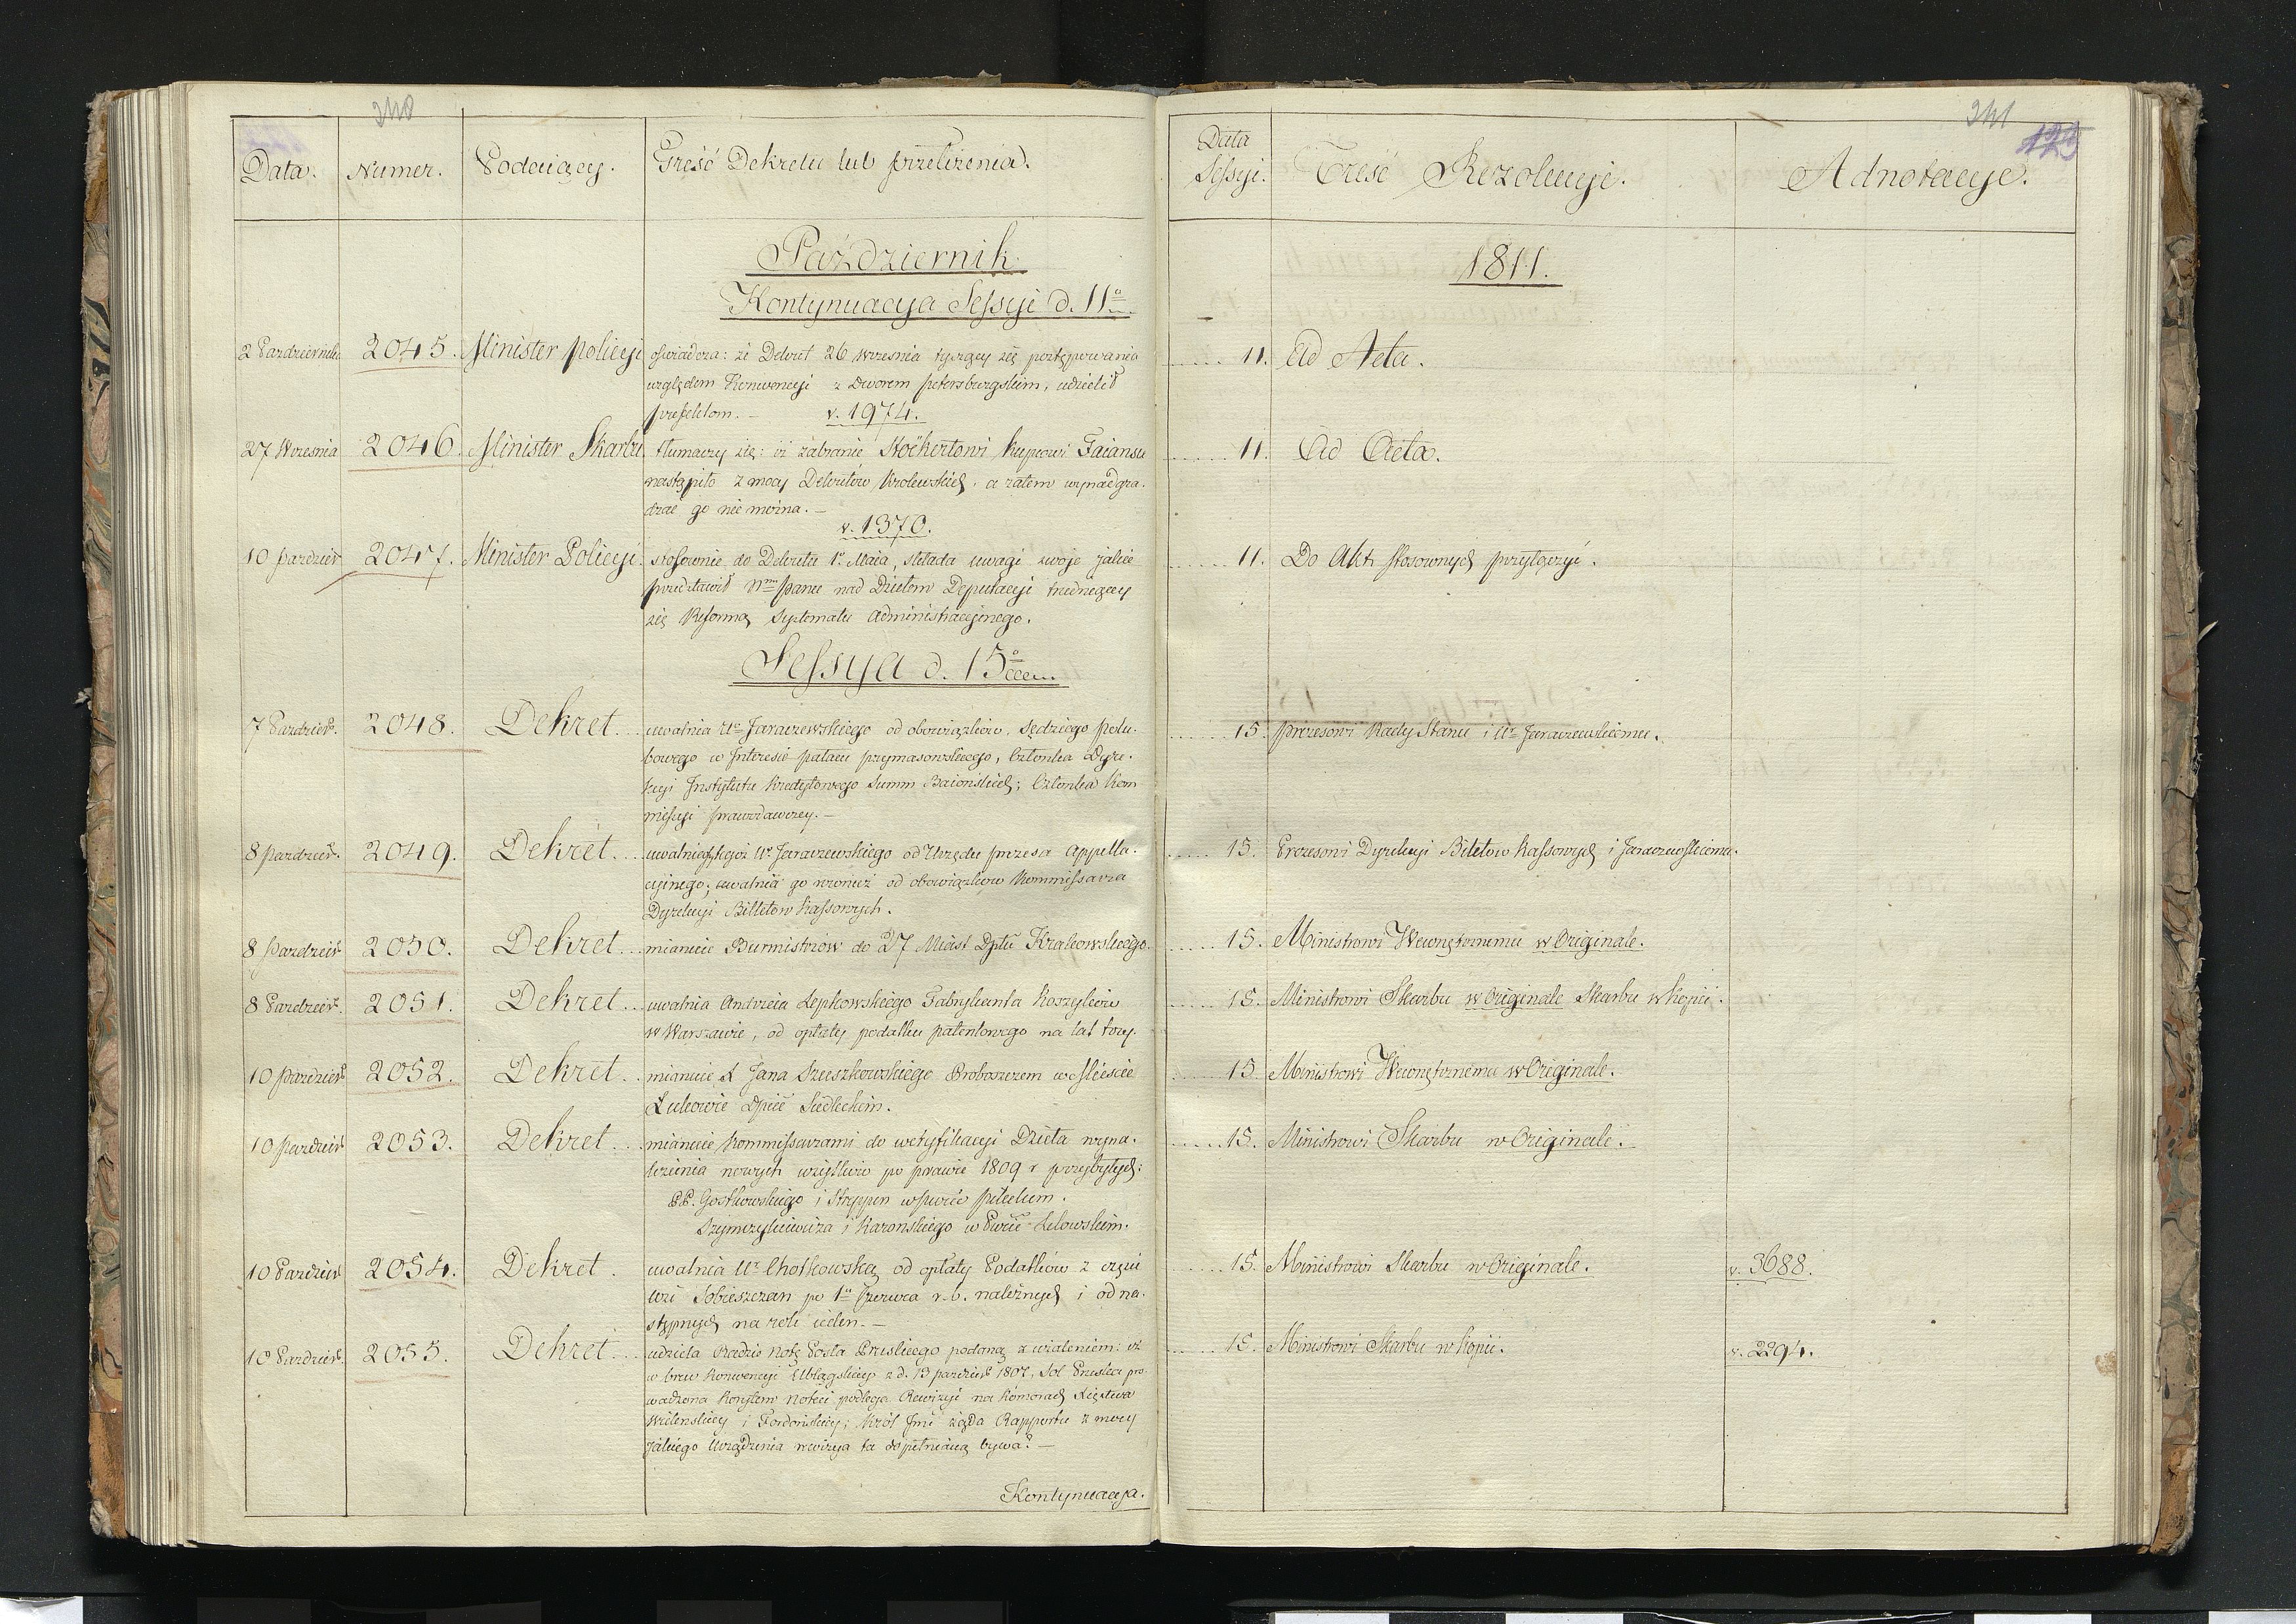 340
Data. Numer. Podaiący. Treść Dekretu lub przełożenia.
Październik
Kontynuacya Sessyi d. 11º
2 Październik 2045. Minister Policyi oświadcza: że Dekret 26 Wrzesnia tyczący się postępowania
względem Konwencyi z Dworem Petersburgskim, udzielił
prefektom. — v. 1974.
27 Wrzesnia 2046. Minister Skarbu tłumaczy się: iż zabranie Stöckertowi kupcowi Faiansu
nastąpiło z mocy Dekretów Krolewskich, a zatem wynadgra-
dzać go nie można. —
v. 1370.
10 Paździer 2047. Minister Policyi. stosownie do Dekretu 1º Maia, składa uwagi swoje jakie
przedstawił Nmu Panu nad Dziełem Deputacyi trudniącey
się Reformą Systematu Administracyinego.
Sessya d. 15º
7 Paździer. 2048. Dekret. uwalnia Uo Jaraczewskiego od obowiązków, Sędziego polu-
bowego w Interesie pałacu prymasowskiego, Członka Dyre-
kcyi Instytutu Kredytowego Summ Baiońskich; Członka Kom
missyi prawodawczey. —
8 Paździer. 2049. Dekret. Ur Jaraczewskiego od Urzędu prezesa Appella-
cyinego; uwalnia go również od obowiązków Kommissarza
Dyrekcyi Billetow Kassowych.
8 Paździer 2050. Dekret mianuie Burmistrzów do 27 Miast Dptu Krakowskiego.
8 Paździer. 2051. Dekret uwalnia Andrzeia Lepkowskiego Fabrykanta Koszyków
w Warszawie, od opłaty podatku patentowego na lat trzy.
10 Paździer 2052. Dekret. mianuie X Jana Szuszkowskiego Proboszczem w Mieście
Łukowie Dpcie Siedleckim.
10 Paździer 2053. Dekret mianuie Kommissarzami do weryfikacyi Dzieła wyna-
lezienia nowych wzystków po prawie 1809 r przybyłych:
PP. Gostkowskiego i Strzyżen w Pwcie Pileckim.
Szymczykiewicza i Karońskiego w Pwcie Lelowskim.
10 Paździer 2054. Dekret. uwalnia Ur Chotkowską od opłaty Podatków z części
Wsi Sobieszczan po 1º Czerwca r. b. należnych i od na-
stępnych na rok ieden. —
10 Paździer. 2055. Dekret udziela Radzie Notę Posła Pruskiego podaną z użaleniem: iż
w brew Konwencyi Elblągskiey z d. 13 Paździer 1807, Sol Pruska pro-
wadzona Korytem Noteci podlega Rewizyi na Komorach Xięstwa
Wileńskiey i Fordońskiey; Król Jmć żąda Rapportu z mocy
jakiego Urządzenia rewizya ta dopełnianą bywa? —
Kontynuacya.
341
123
Data Sessyi. Treść Rezolucyi. Adnotacye.
1811.
11. Ad Acta.
11. Ad Acta.
11. Do Akt stosownych przyłączyć.
15. Prezesowi Rady Stanu i Ur Jaraczewskiemu.
15. Prezesowi Dyrekcyi Biletow Kassowych i Jaraczewskiemu.
15. Ministrowi Wewnętrznemu w Originale.
15. Ministrowi Skarbu w Originale Skarbu w kopii.
15. Ministrowi Wewnętrznemu w Originale.
15. Ministrowi Skarbu w Originale.
15. Ministrowi Skarbu w Originale. v. 3688.
15. Ministrowi Skarbu w kopii. v. 2294.